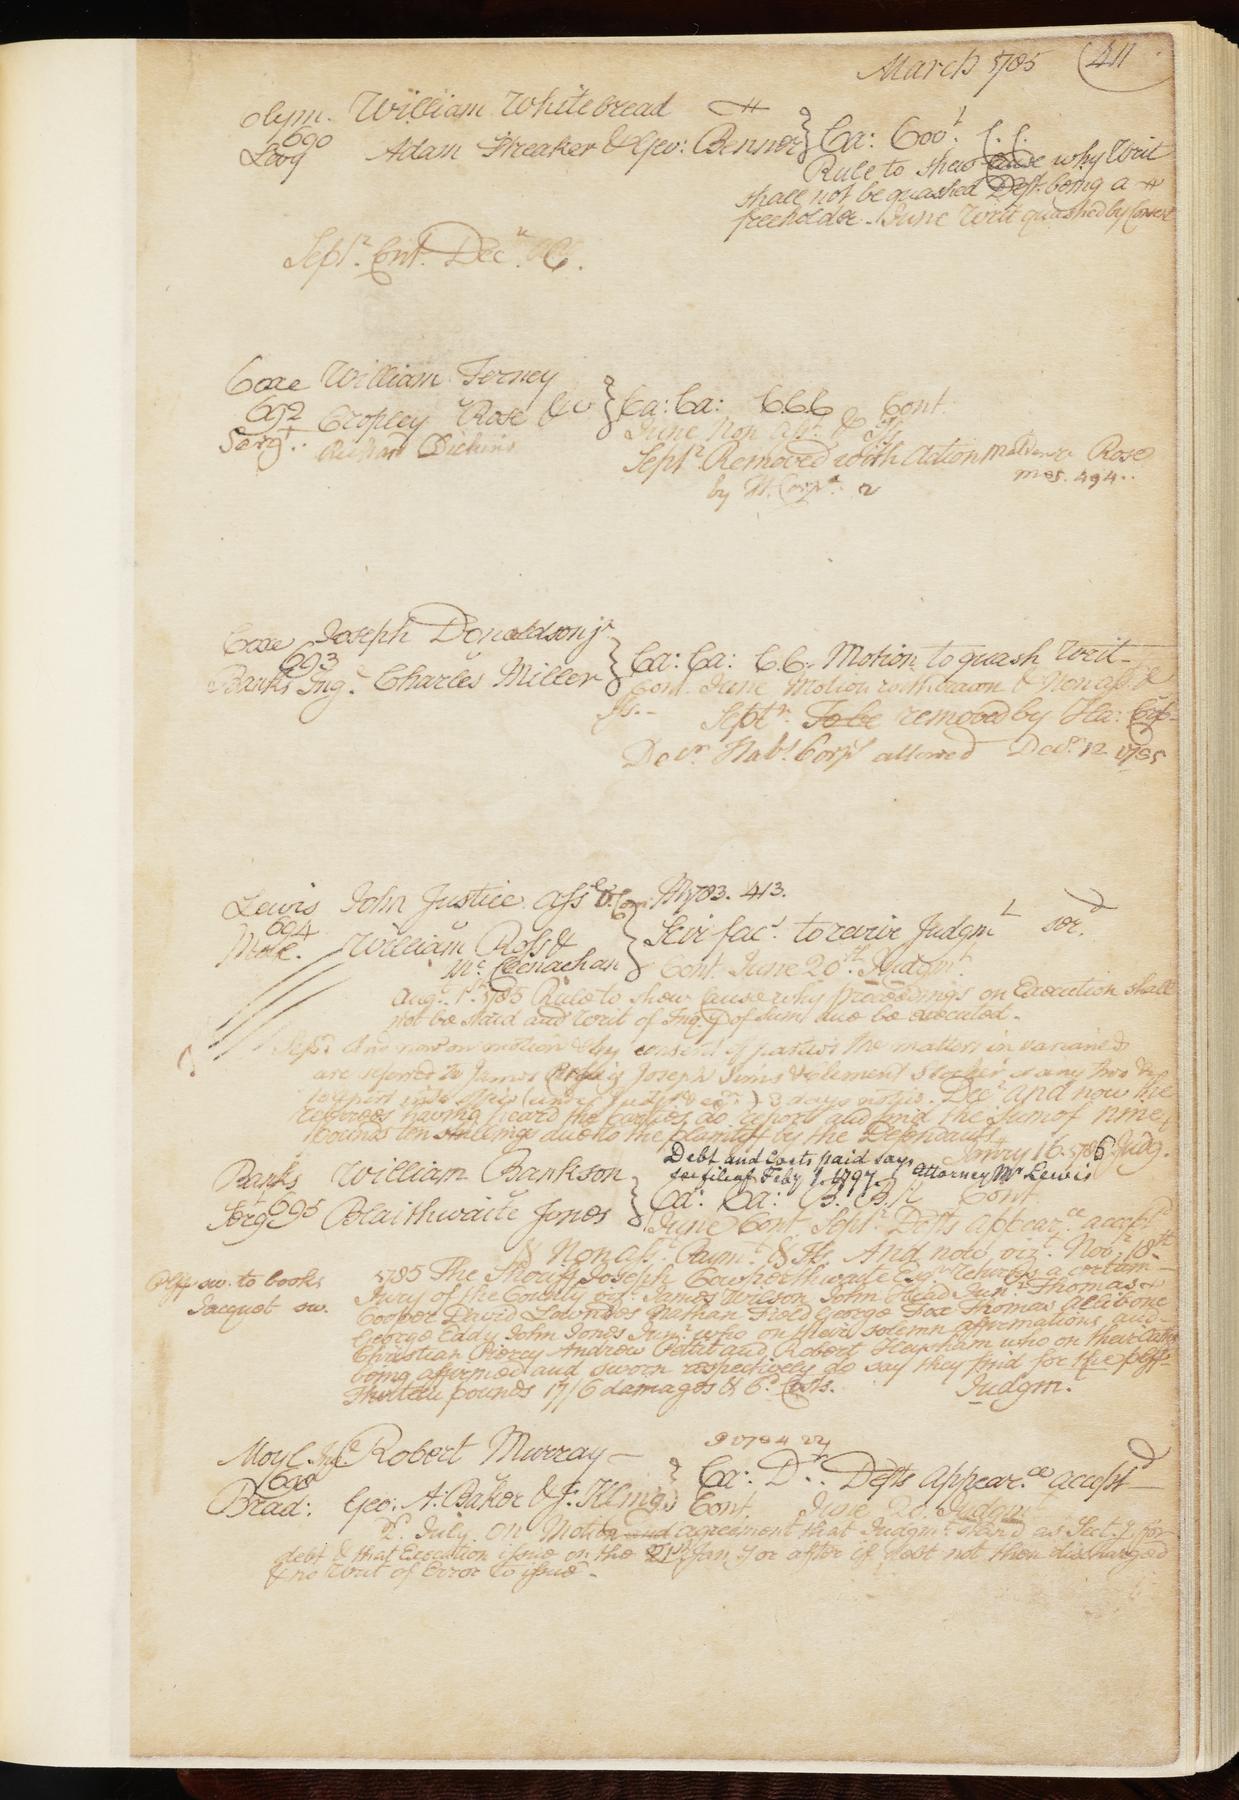 March 1785 411
Clym. William Whitebread
690
Levy Adam Streaker & Geo: Benner } Ca: Coo.t C. C.
Rule to shew Cause why Writ
shall not be quashed Deft. being a
freeholder. June Writ quashed by Consent
Sept.r Cont. Dec.r
Coxe William Forney
692 Cropley Rose &c } Ca: Ca: C.C.C Cont.
Serg.t Richard Dickins June Non ass.t &
Sept.r Removed with Action Rose
by H. Corp.s mes. 494.
Coxe Joseph Donaldson jr.
693
Banks Ing.l Charles Miller } Ca: Ca: C.C. Motion to quash Writ
Cont. June Motion withdrawn & Non ass.t &
Sept.r To be removed by Ha: Corp.
Dec.r Hab.s Corp.s allowed Dec.r 12 1785
Lewis John Justice Ass.ee M 1783. 413.
694
William Ross & } Scir fac.s to revive Judgm.t
McClenachan Cont. June 20.th Judgm.t
Aug.t 1.st 1785 Rule to show Cause why proceedings on Execution shall
not be staid and Writ of Inq.y of sum due be executed.
Sept.r And now on motion & by consent of parties the matters in variance
are referred to James Joseph Sims & Clement Stocker or any two &
to report into office 3 days notice. Dec.r And now the
referees having heard the parties do report and find the Sum of nine
pounds ten shillings due to the plaintiff by the Defendants
Janry 16. 1786 Judg.
Debt and Costs paid says
see file of Feby 1. 1797. Attorney Mr Lewis
Banks William Bankson
Serg.t 695 Blaithwaite Jones } Ca: Ca: Cont
June Cont Sept.r Defts appear.ce accept.d
& Non ass.t Paym.t & Iss. And now viz.t Nov.r 18.th
Plff sw. to books
1785 The Sheriff Joseph Cowperthwaite Esq.r returns a certain
Jacquet sw.
Jury of the County viz.t James Wilson John Read Jun.r Thomas
Cooper David Lowndes Nathan Field George Fox Thomas Allibone
George Eddy John Jones Jun.r who on their solemn affirmations and
Christian Piercy Andrew Pettit and Robert Heysham who on their Oaths
being affirmed and sworn respectively do say they find for the plff.
Thirteen pounds 17/6 damages & 6.d Costs. Judgm.
Moyl. Ing.l Robert Murray S 1784 27
Brad: Geo: A. Baker & J. Kling } Ca: D.r Defts appear.ce accept
Cont. June 20. Judgm.t
July. On Motion and agreement that Judgm.t stand as Sect.y for
debt & that Execution issue on the 21.st Jan.y or after if debt not then discharged
& no Writ of Error to issue.